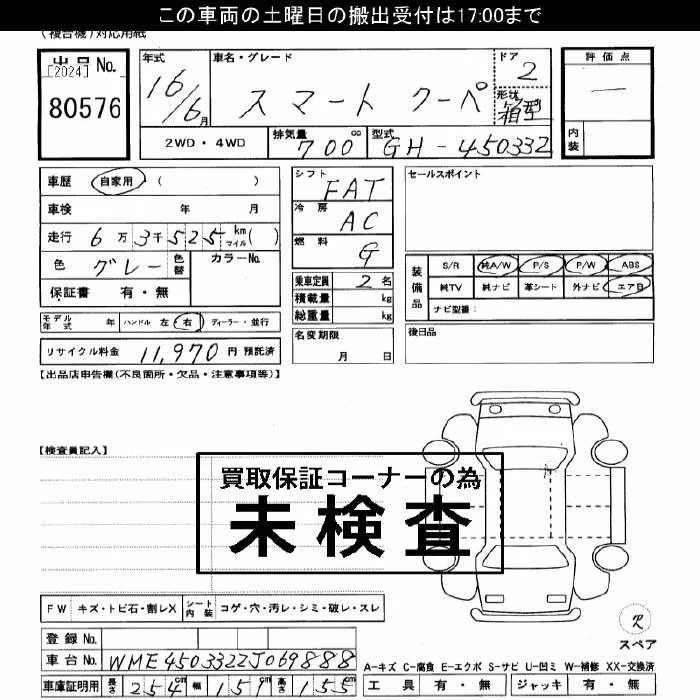 この車両の土曜日の搬出受付は17:00まで
(複合機)対応用紙
出品 No.
[2024]
80576
年式 16/6月
車名・グレード スマート クーペ
ドア 2
形状 箱型
評価点 —
内装
2WD・4WD
排気量 700 cc
型式 GH-450332
車歴 自家用 ( )
車検 年 月
走行 6万3千525 km マイル( )
色 グレー 色替 カラーNo.
保証書 有・無
シフト FAT
冷房 AC
燃料 G
乗車定員 2名
積載量 kg
総重量 kg
セールスポイント
装備品 S/R 純A/W P/S P/W ABS
純TV 純ナビ 革シート 外ナビ エアB
ナビ型番:
モデル年式 年 ハンドル 左 右 ディーラー・並行
名変期限 月 日
後日品
リサイクル料金 11,970 円 預託済
【出品店申告欄(不良箇所・欠品・注意事項等)】
【検査員記入】
買取保証コーナーの為
未検査
FW キズ・トビ石・割レX シート内装 コゲ・穴・汚レ・シミ・破レ・スレ
スペア
登録 No.
車台 No. WME4503322J069888
A-キズ C-腐食 E-エクボ S-サビ U-凹ミ W-補修 XX-交換済
車庫証明用 長さ 254 cm 幅 151 cm 高さ 155 cm
工具 有・無 ジャッキ 有・無